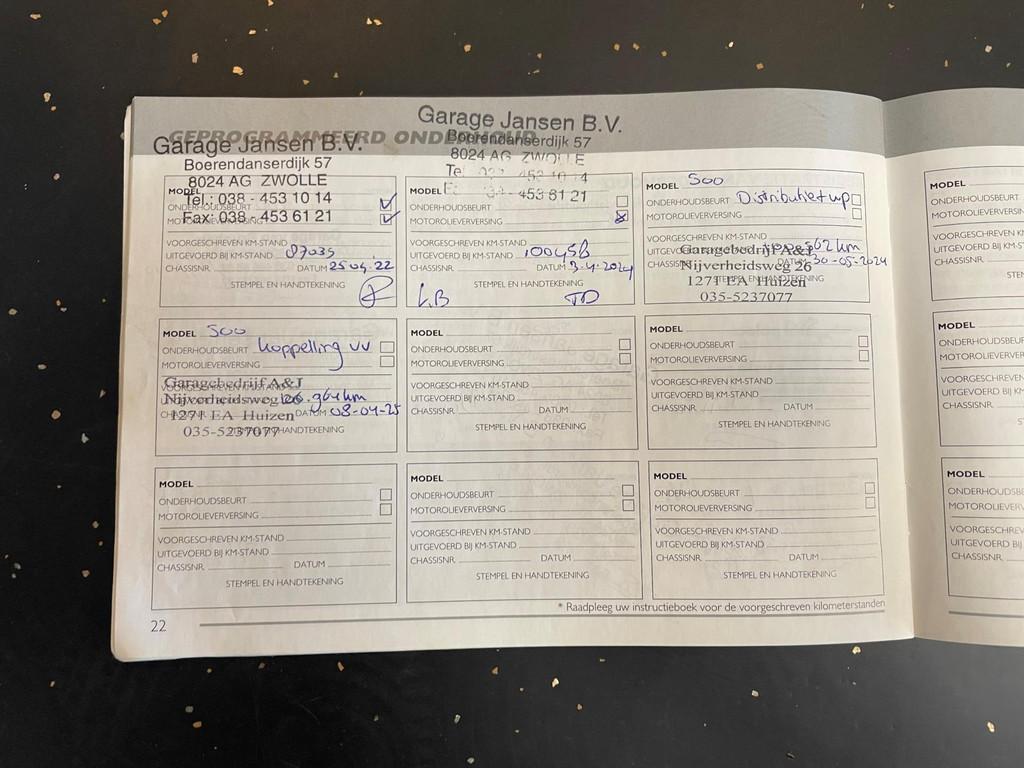 GEPROGRAMMEERD ONDERHOUD
Garage Jansen B.V.
Boerendanserdijk 57
8024 AG ZWOLLE
Tel.: 038 - 453 10 14
Fax: 038 - 453 61 21
MODEL
ONDERHOUDSBEURT
MOTOROLIEVERVERSING
VOORGESCHREVEN KM-STAND
UITGEVOERD BIJ KM-STAND 87035
CHASSISNR. DATUM 25 04 22
STEMPEL EN HANDTEKENING
Garage Jansen B.V.
Boerendanserdijk 57
8024 AG ZWOLLE
453 10 14
453 61 21
MODEL
ONDERHOUDSBEURT
MOTOROLIEVERVERSING
VOORGESCHREVEN KM-STAND
UITGEVOERD BIJ KM-STAND
CHASSISNR. DATUM 3-4-2024
STEMPEL EN HANDTEKENING
L.B TD
MODEL 500
ONDERHOUDSBEURT Distributie+wp
MOTOROLIEVERVERSING
VOORGESCHREVEN KM-STAND
UITGEVOERD BIJ KM-STAND
CHASSISNR. DATUM 30-05-2024
STEMPEL EN HANDTEKENING
Garagebedrijf A&J
Nijverheidsweg 26
1271 EA Huizen
035-5237077
MODEL
ONDERHOUDSBEU
MOTOROLIEVER
VOORGESCHREVEN K
UITGEVOERD BIJ K
CHASSISNR.
STE
MODEL 500
ONDERHOUDSBEURT koppelling vv
MOTOROLIEVERVERSING
VOORGESCHREVEN KM-STAND
Garagebedrijf A&J
Nijverheidsweg 26
1271 EA Huizen
035-5237077
DATUM 08-04-25
HANDTEKENING
MODEL
ONDERHOUDSBEURT
MOTOROLIEVERVERSING
VOORGESCHREVEN KM-STAND
UITGEVOERD BIJ KM-STAND
CHASSISNR. DATUM
STEMPEL EN HANDTEKENING
MODEL
ONDERHOUDSBEURT
MOTOROLIEVERVERSING
VOORGESCHREVEN KM-STAND
UITGEVOERD BIJ KM-STAND
CHASSISNR. DATUM
STEMPEL EN HANDTEKENING
MODEL
ONDERHOUDSBEUR
MOTOROLIEVERVE
VOORGESCHREVEN
UITGEVOERD BIJ KM
CHASSISNR.
ST
MODEL
ONDERHOUDSBEURT
MOTOROLIEVERVERSING
VOORGESCHREVEN KM-STAND
UITGEVOERD BIJ KM-STAND
CHASSISNR. DATUM
STEMPEL EN HANDTEKENING
MODEL
ONDERHOUDSBEURT
MOTOROLIEVERVERSING
VOORGESCHREVEN KM-STAND
UITGEVOERD BIJ KM-STAND
CHASSISNR. DATUM
STEMPEL EN HANDTEKENING
MODEL
ONDERHOUDSBEURT
MOTOROLIEVERVERSING
VOORGESCHREVEN KM-STAND
UITGEVOERD BIJ KM-STAND
CHASSISNR. DATUM
STEMPEL EN HANDTEKENING
MODEL
ONDERHOUDSBE
MOTOROLIEVER
VOORGESCHREV
UITGEVOERD BIJ
CHASSISNR.
* Raadpleeg uw instructieboek voor de voorgeschreven kilometerstanden
22